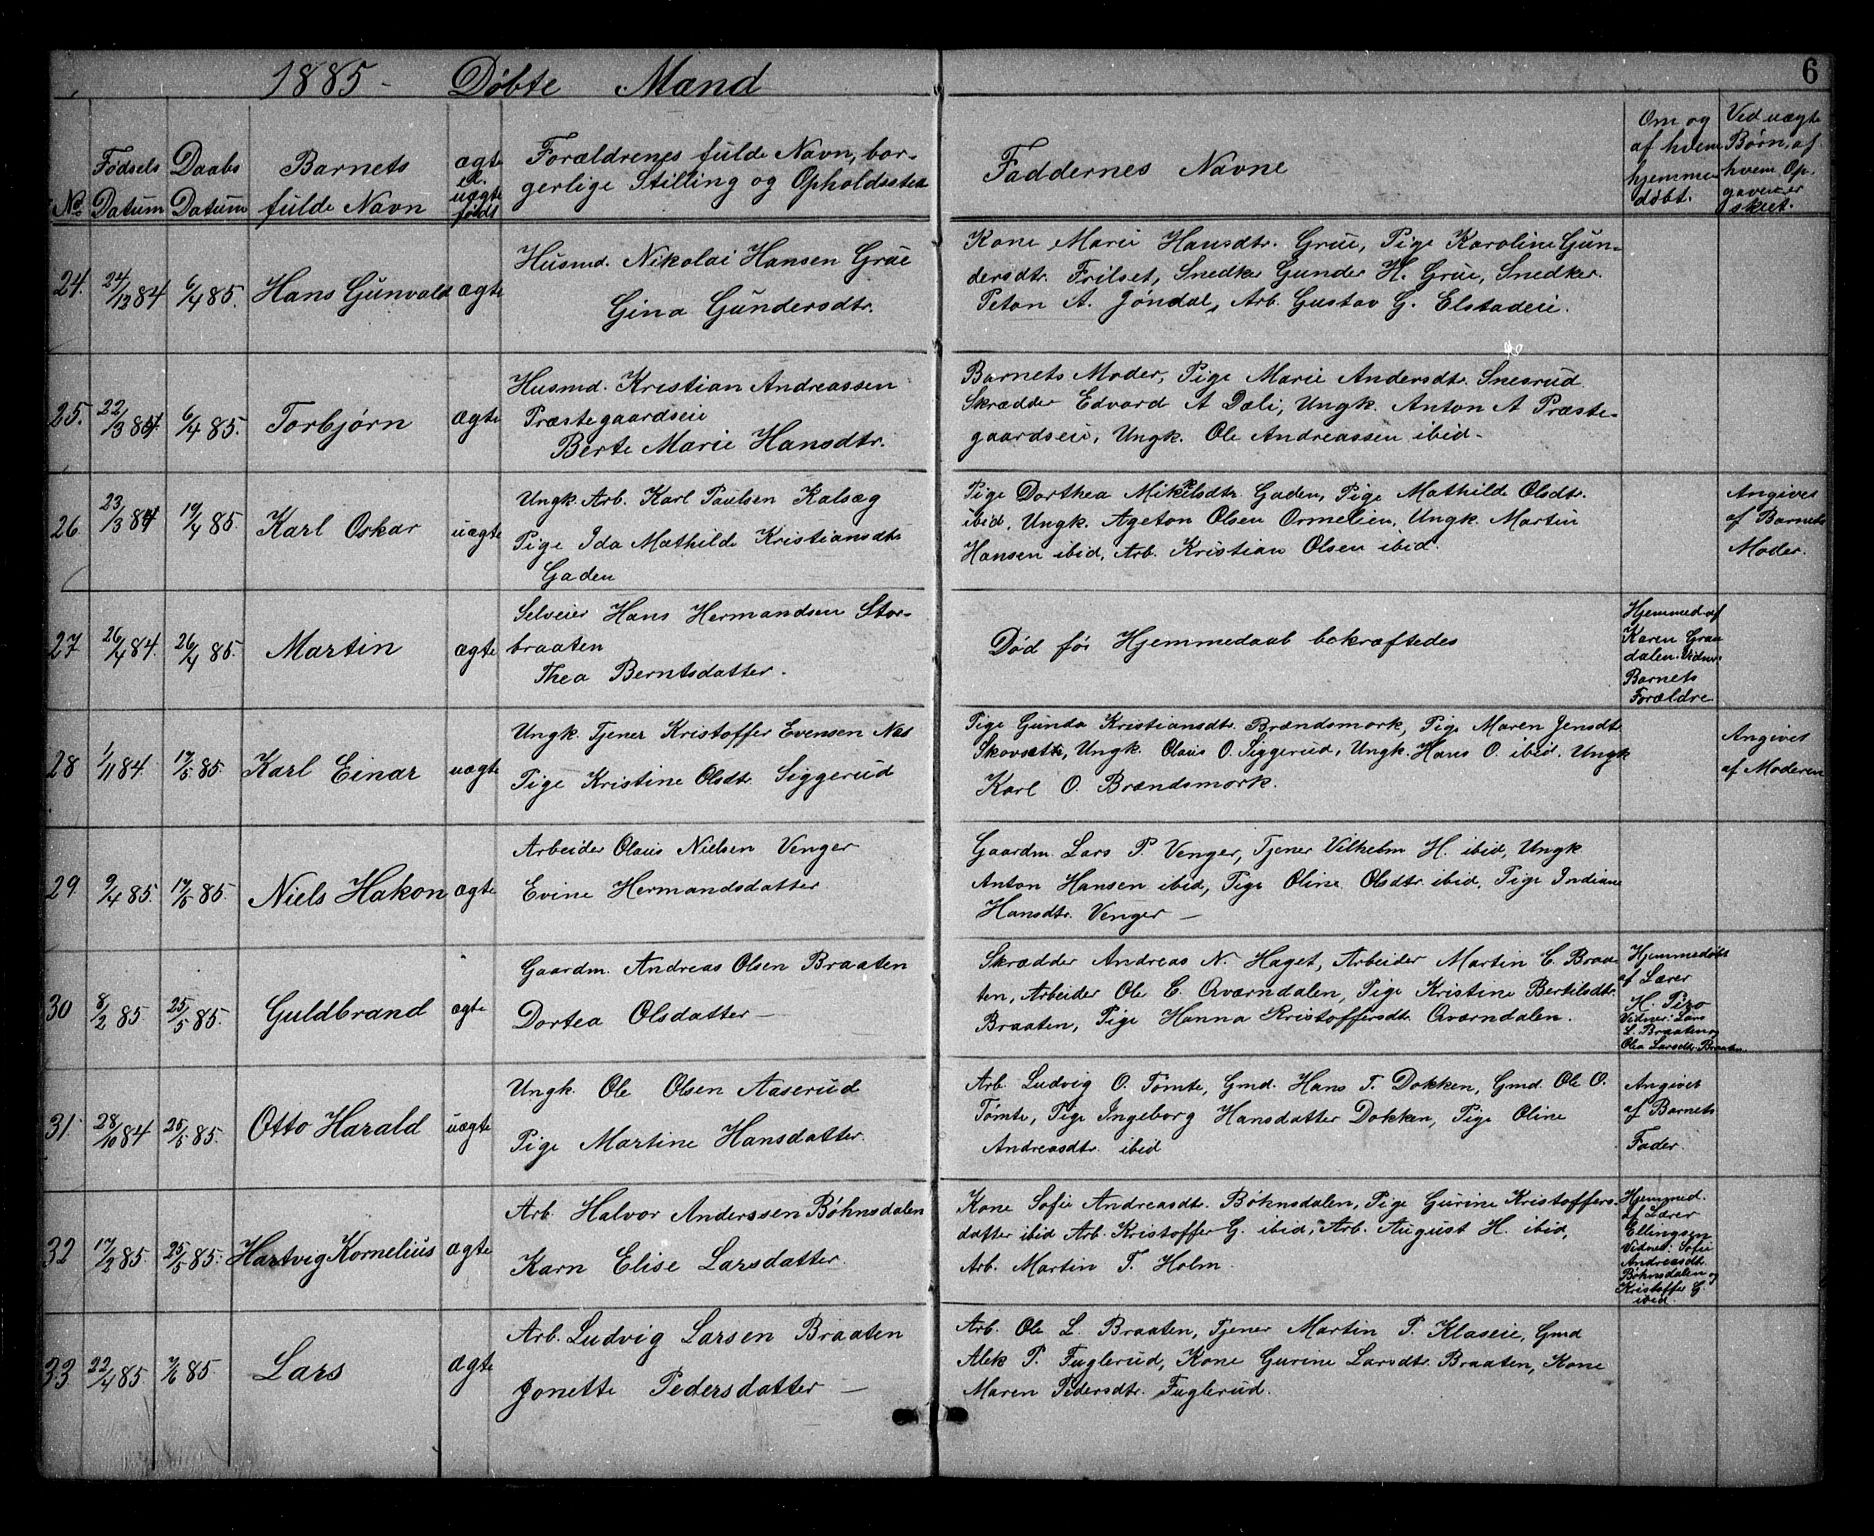 1885 - Døbte Mænd
6
No
Fødsels Datum
Daabs Datum
Barnets fulde Navn
ægte el. uægte født
Forældrenes fulde Navn, bor-
gerlige Stilling og Opholdssted
Faddernes Navne
Om og af hvem hjemmedøbt.
Ved uægte Børn, af hvem Opgaven er skeet.
24. 24/12 84 6/4 85. Hans Gunvald ægte
Husmd. Nikolai Hansen Grue
Gina Gundersdtr.
Kone Marie Hansdtr. Grue, Pige Karoline Gun-
dersdtr. Frilset, Snedker Gunder H. Grue, Snedker
Peton A. Jøndal, Arb. Gustav G. Elstadeie.
25. 22/3 84 6/4 85. Torbjørn ægte
Husmd. Kristian Andreassen
Præstegaardseie
Berte Marie Hansdtr.
Barnets Moder, Pige Marie Andersdt. Snesrud
Skrædder Edvard A Dæli, Ungk. Anton A Præste-
gaardseie, Ungk. Ole Andreassen ibid -
26 23/3 84 19/4 85. Karl Oskar uægte
Ungk. Arb. Karl Paulsen Kalsæg
Pige Ida Mathilde Kristiansdtr
Gaden
Pige Dorthea Mikkelsdtr Gaden, Pige Mathilde Olsdtr.
ibid, Ungk. Ageton Olsen Ormelien, Ungk. Martin
Hansen ibid, Arb. Kristian Olsen ibid.
Angivet
af Barnets
Moder.
27 26/4 84. 26/4 85. Martin ægte
Selveier Hans Hermandsen Stor-
braaten
Thea Berntsdatter.
Død før Hjemmedaab bekræftedes
Hjemmed. af
Karen Graa
dalen. Vidner
Barnets
Forældre
28 1/11 84. 17/5 85. Karl Einar uægte
Ungk. Tjener Kristoffer Evensen Næs
Pige Kristine Olsdt. Siggerud
Pige Gunda Kristiansdtr. Brændsmork, Pige Maren Jensdtr
Skovsætt, Ungk. Olaus O. Siggerud, Ungk. Hans O. ibid. Ungk
Karl O. Brændsmork.
Angivet
af Moderen
29 9/4 85. 17/5 85. Niels Hakon ægte
Arbeider Olaus Nielsen Venger
Evine Hermandsdatter
Gaardm. Lars P. Venger, Tjener Vilhelm H. ibid, Ungk
Anton Hansen ibid, Pige Oline Olsdtr. ibid, Pige Indiane
Hansdtr. Venger -
30 8/2 85 25/5 85. Guldbrand ægte
Gaardm. Andreas Olsen Braaten
Dortea Olsdatter -
Skrædder Andreas N. Haget, Arbeider Martin C. Braa-
ten, Arbeider Ole C. Qværndalen, Pige Kristine Bertilsdtr.
Braaten, Pige Hanna Kristoffersdt. Qværndalen.
Hjemmedøbt
af Lærer
H. Piro
Vidner: Lars
L. Braaten og
Olea Larsdtr. Braaten
31. 28/10 84 25/5 85. Otto Harald uægte
Ungk. Ole Olsen Aaserud
Pige Martine Hansdatter.
Arb. Ludvig O. Tømte, Gmd. Hans T. Dokken, Gmd. Ole O.
Tømte, Pige Ingeborg Hansdatter Dokken, Pige Oline
Andreasdtr. ibid
Angivet
af Barnets
Fader.
32 17/2 85. 25/5 85. Hartvig Kornelius ægte
Arb. Halvor Anderssen Bøhnsdalen
Karn Elise Larsdatter.
Kone Sofie Andreasdt. Bøhnsdalen, Pige Gurine Kristoffers-
datter ibid Arb. Kristoffer G. ibid, Arb. August H. ibid,
Arb. Martin T. Holm.
Hjemmed.
af Lærer
Ellingsen
Vidner: Sofie
Andreasdt.
Bøhnsdalen og
Kristoffer G.
ibid.
33 22/4 85 7/6 85. Lars ægte
Arb. Ludvig Larsen Braaten
Jonette Pedersdatter -
Arb. Ole L. Braaten, Tjener Martin P. Klaseie, Gmd
Alek P. Fuglerud, Kone Gurine Larsdtr. Braaten, Kone
Maren Pedersdtr. Fuglerud.